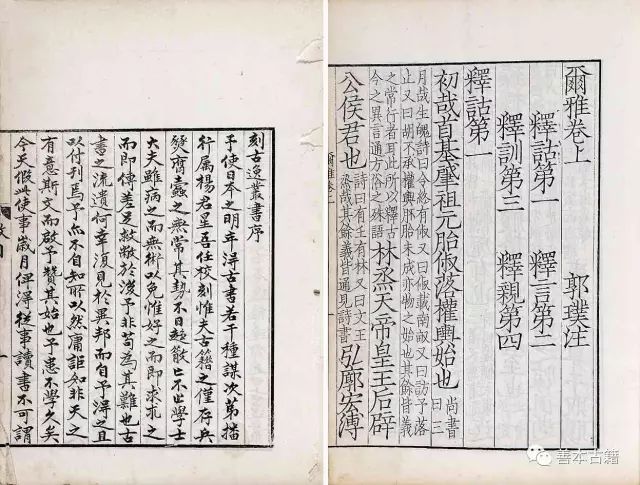 爾雅卷上 郭璞注
釋詁第一 釋言第二
釋訓第三 釋親第四
釋詁第一
初哉首基肇祖元胎俶落權輿始也 尚書曰三
月哉生魄詩曰令終有俶又曰俶載南畝又曰訪予落
止又曰胡不承權輿胚胎未成亦物之始也其餘皆義
之常行者耳此所以釋古
今之異言通方俗之殊語 林烝天帝皇王后辟
公侯君也 詩曰有壬有林又曰文王
烝哉其餘義皆通見詩書 弘廓宏溥
爾雅卷上
刻古逸叢書序
予使日本之明年得古書若干種謀次第播
行屬楊君星吾任校刻惟夫古籍之僅存兵
燹腐蠹之無常其勢不日趨散亡不止學士
大夫雖病之而無術以免惟好之而即求求之
而即傳差足救敝於後予非苟為其難也古
書之流遺何幸復見於異邦而自予得之且
以付刊焉予亦不自知所以然庸詎知非天之
有意斯文而啟予贊其始也予患不學久矣
今天假此使事歲月俾得從事讀書不可謂
善本古籍